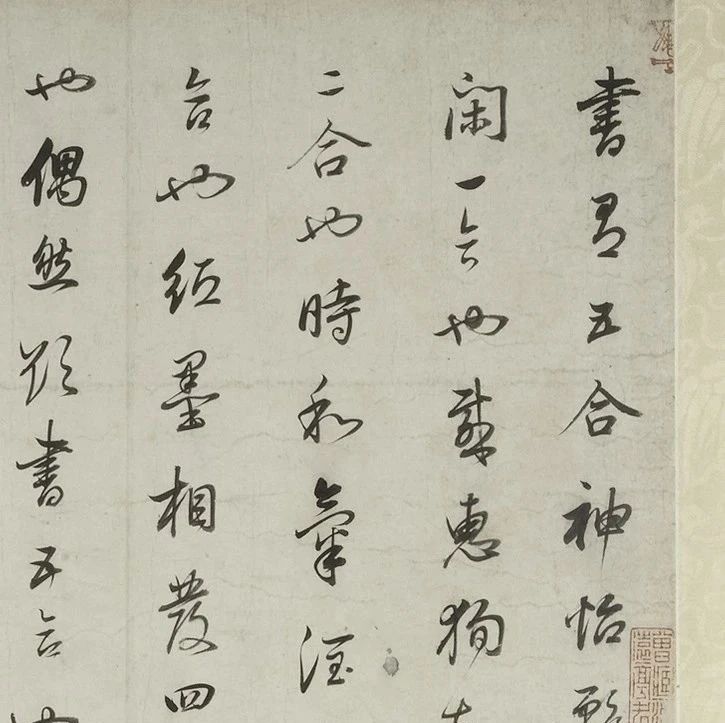 書有五合神怡
閑一合也感惠徇
二合也時和氣潤
合也紙墨相發四
也偶然欲書五合